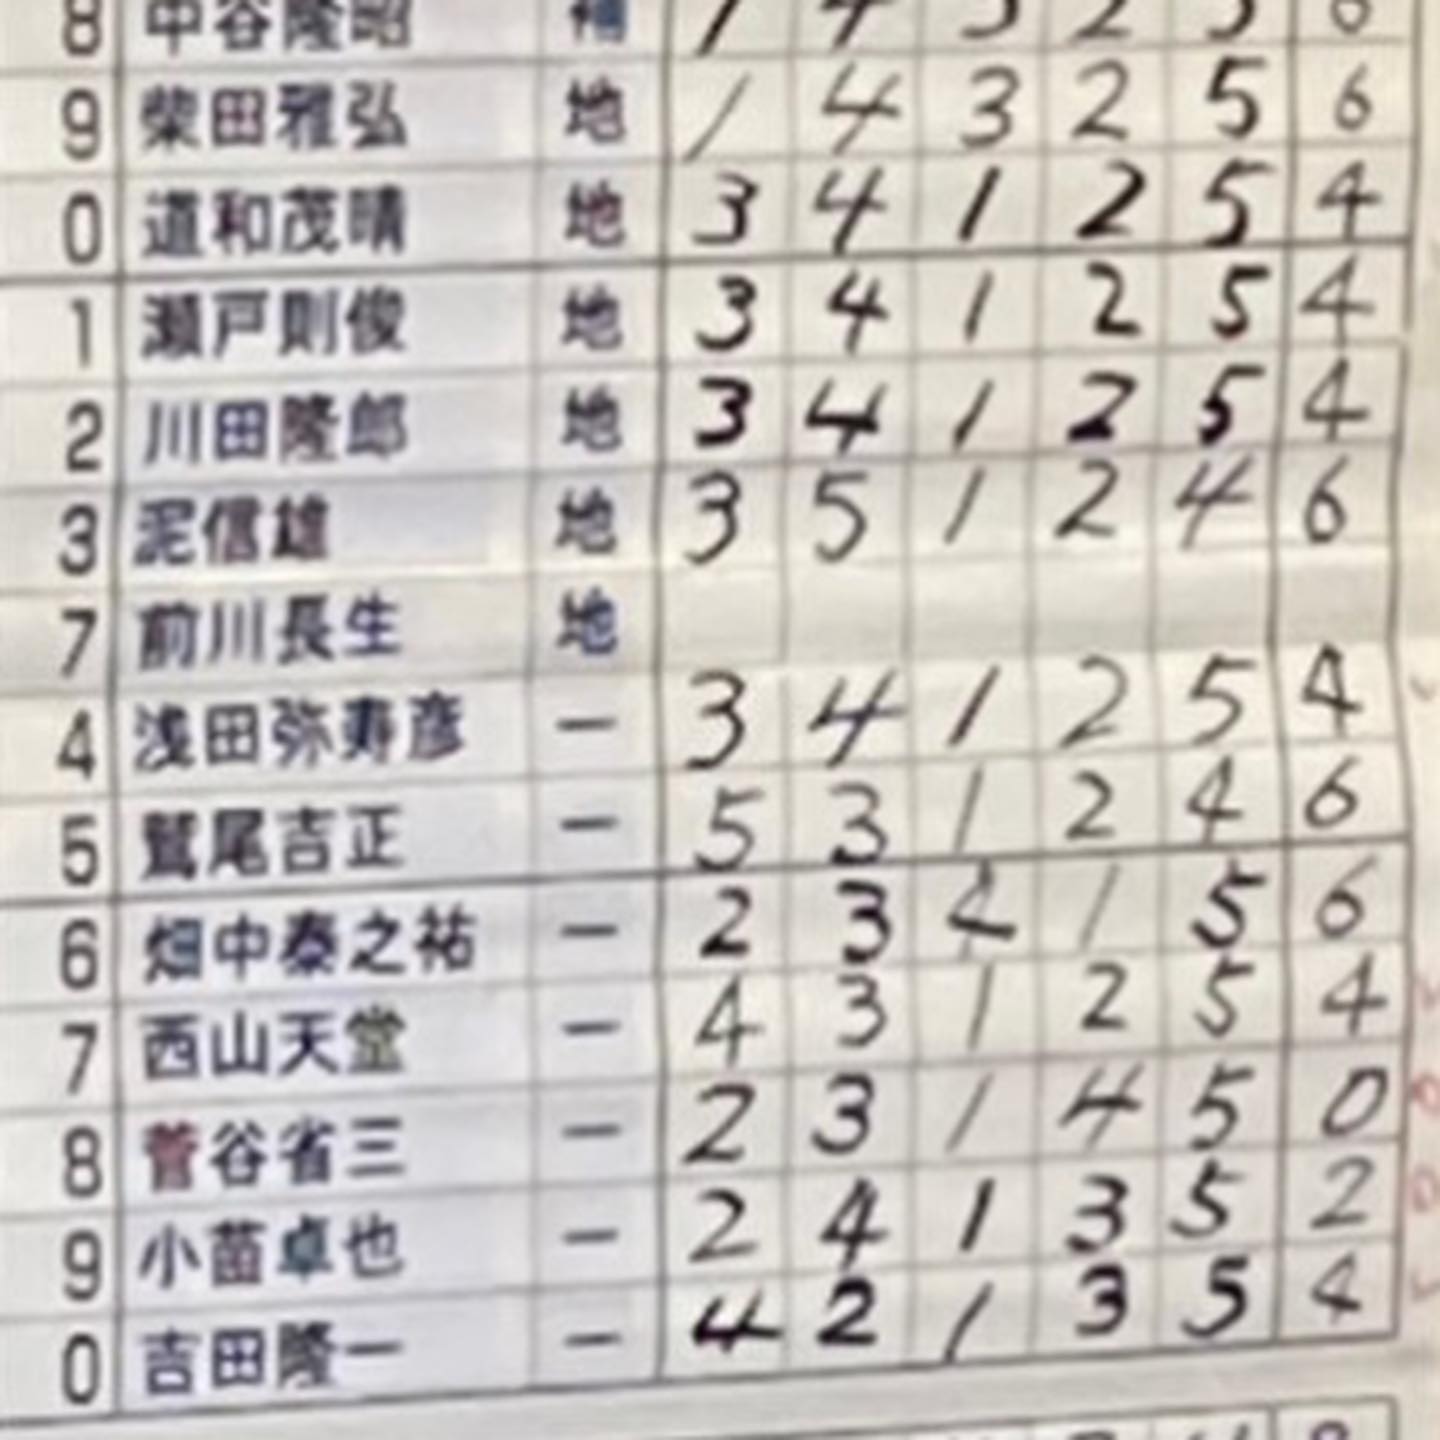 8 中谷隆昭 補 1 4 3 2 5 6
9 柴田雅弘 地 1 4 3 2 5 6
0 道和茂晴 地 3 4 1 2 5 4
1 瀬戸則俊 地 3 4 1 2 5 4
2 川田隆郎 地 3 4 1 2 5 4
3 泥信雄 地 3 5 1 2 4 6
7 前川長生 地
4 浅田弥寿彦 一 3 4 1 2 5 4
5 鷲尾吉正 一 5 3 1 2 4 6
6 畑中泰之祐 一 2 3 4 1 5 6
7 西山天堂 一 4 3 1 2 5 4
8 菅谷省三 一 2 3 1 4 5 0
9 小苗卓也 一 2 4 1 3 5 2
0 吉田隆一 一 4 2 1 3 5 4